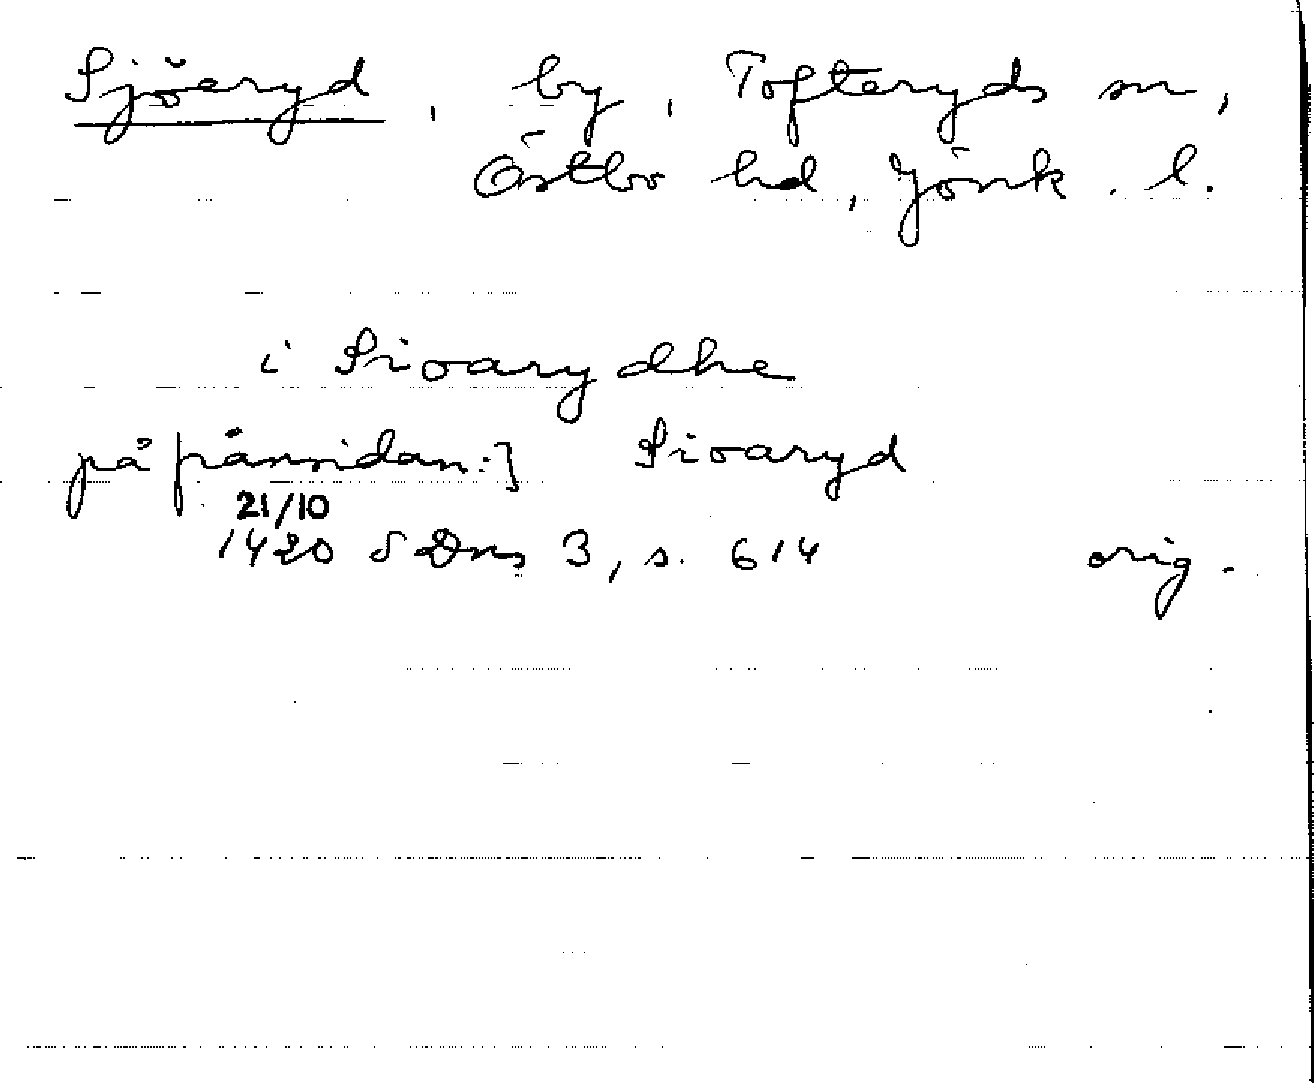 Sjöaryd, by, Tofteryds sn,
Östbo hd, Jönk. l.
i Sioarydhe
på frånsidan:] Sioaryd
21/10
1420 SDns 3, s. 614 orig.